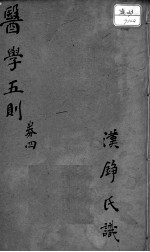 醫學五則
卷四
漢錚氏識